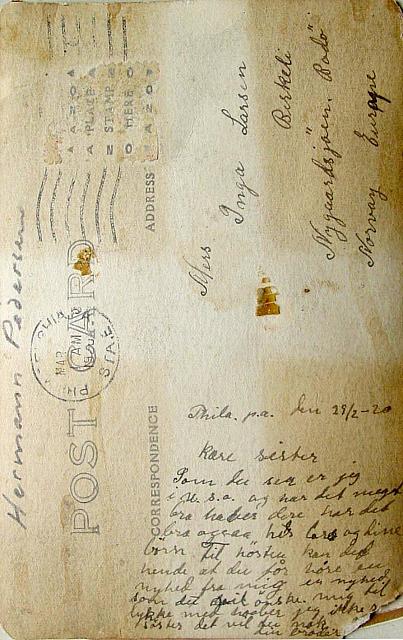 Hermann Pedersen
POST CARD
PLACE
STAMP
HERE
MAR
AM
CORRESPONDENCE
ADDRESS
Mers Inga Larsen
Birkeli
Nygaardsjøen. Bodö
Norway Europe
Phila. p.a. den 29/2-20
Kære sister
Som du ser er jeg
i U.s.a. og har det meget
bra haaber dere har det
bra ogsaa hils Lars og dine
börn Til hösten kan det
hende at du får höre en
nyhed fra mig en nyhed
som du vil önske mig til
lykke med
söster det vil du nok
din broder